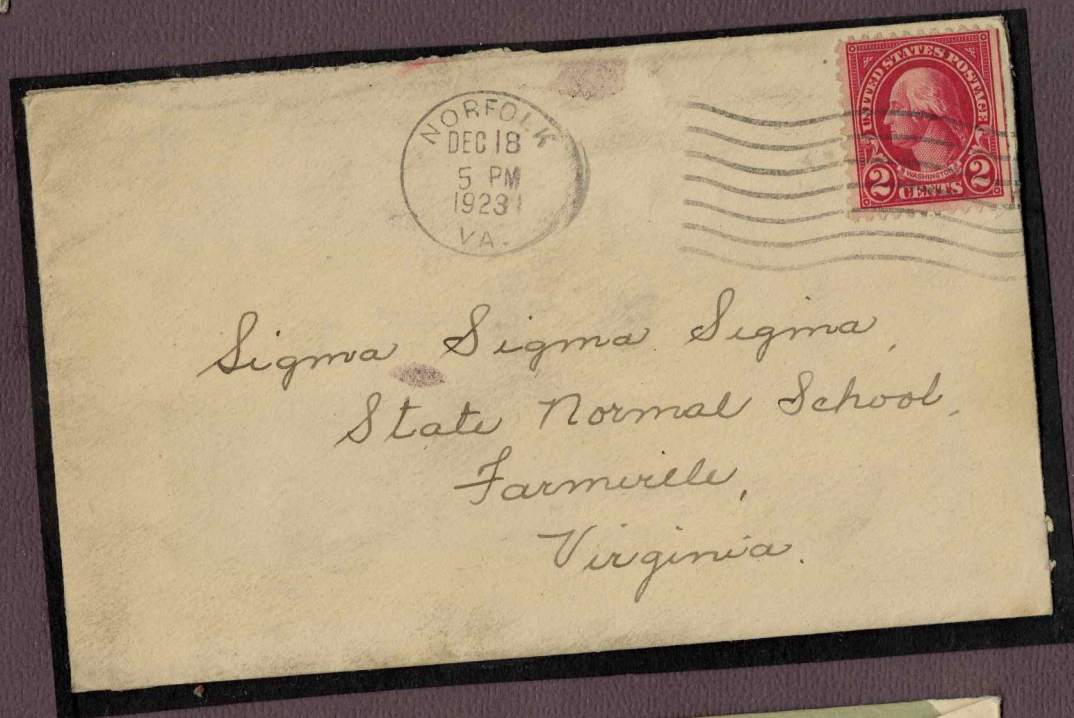 NORFOLK
DEC 18
5 PM
1923
VA.
UNITED STATES POSTAGE
WASHINGTON
2 CENTS 2
Sigma Sigma Sigma,
State Normal School,
Farmville,
Virginia.